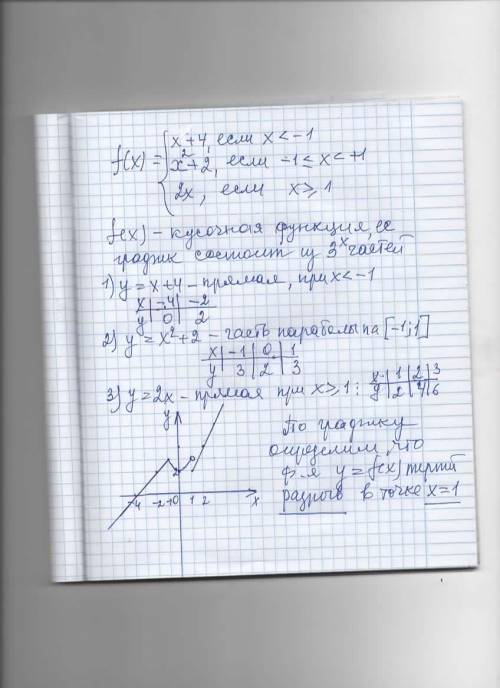 f(x) = { x+4, если x < -1
x²+2, если -1 ≤ x < +1
2x, если x ≥ 1
f(x) - кусочная функция, ее
график состоит из 3ˣ частей
1) y = x+4 - прямая, при x < -1
x | -4 | -2
y | 0 | 2
2) y = x²+2 - часть параболы на [-1;1]
x | -1 | 0 | 1
y | 3 | 2 | 3
3) y = 2x - прямая при x ≥ 1:
x | 1 | 2 | 3
y | 2 | 4 | 6
y
2
-4 -2 0 1 2 x
По графику
определим, что
ф-я y = f(x) терпит
разрыв в точке x=1